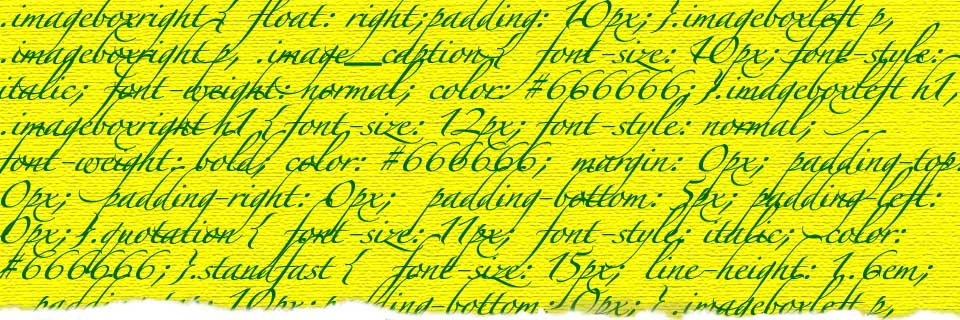 .imageboxright{ float: right;padding: 10px; }.imageboxleft p,
.imageboxright p, .image_caption{ font-size: 10px; font-style:
italic; font-weight: normal; color: #666666; }.imageboxleft h1,
.imageboxright h1 { font-size: 12px; font-style: normal;
font-weight: bold; color: #666666; margin: 0px; padding-top:
0px; padding-right: 0px; padding-bottom: 5px; padding-left:
0px; }.quotation { font-size: 11px; font-style: italic; color:
#666666; }.standfast { font-size: 15px; line-height: 1.6em;
10px; padding-bottom: 0px; } .imageboxleft p,